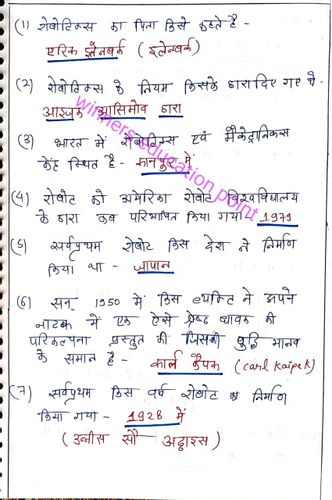 (1) रोबोटिक्स का पिता किसे कहते है -
एरिक ईंजलबर्क (इलेनवर्क)
(2) रोबोटिक्स के नियम किसके द्वारा दिए गए थे -
आइजक आसिमोव द्वारा
(3) भारत में रोबोटिक्स एवं मैकेट्रानिक्स
केंद्र स्थित है - कानपुर में
(4) रोबोट को अमेरिका रोबोट विश्वविद्यालय
के द्वारा कब परिभाषित किया गया 1979
(5) सर्वप्रथम रोबोट किस देश ने निर्माण
किया था - जापान
(6) सन् 1950 में किस व्यक्ति ने अपने
नाटक में एक ऐसे श्रेष्ठ श्रावक की
परिकल्पना प्रस्तुत की जिसकी बुद्धि मानव
के समान है - कार्ल कैपक (Carl Kaipek)
(7) सर्वप्रथम किस वर्ष रोबोट का निर्माण
किया गया - 1928 में
(उन्नीस सौ अट्ठाइस)
winners education point